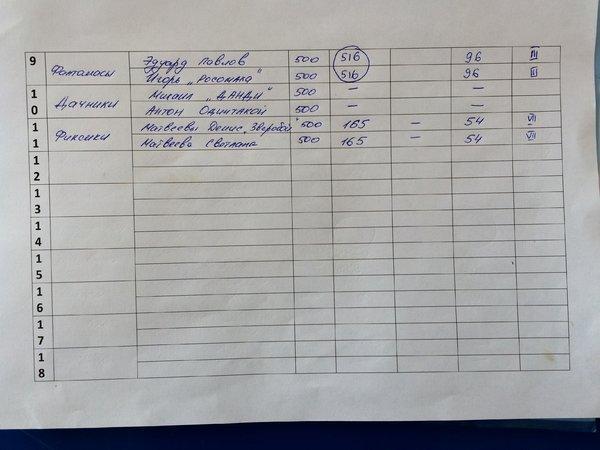 9 Фантомасы Эдуард Павлов 500 516 96 III
Игорь "Росомаха" 500 516 96 III
10 Дачники Михаил "ДАНДИ" 500 — —
Антон Одинтакой 500 — —
11 Фиксики Матвеевы Денис "Зверобой" 500 165 — 54 VII
Матвеева Светлана 500 165 — 54 VII
12
13
14
15
16
17
18